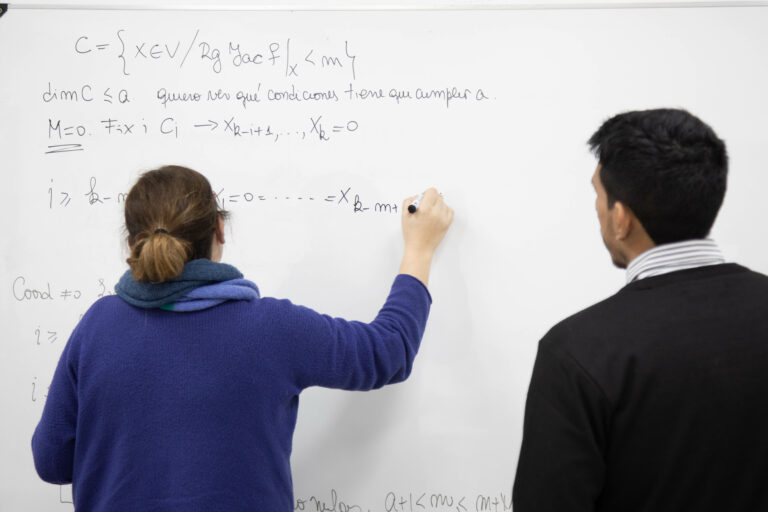 C = { x ∈ V / Rg Jac f|x < m }
dim C ≤ a quiero ver qué condiciones tiene que cumplir a.
M=0. Fix i Ci → Xk-i+1, ..., Xk = 0
i ≥ k-m X1 = 0 = ..... = Xk-m+
Coord ≠ 0
i ≥
i
nulos. a+1 < m < m+